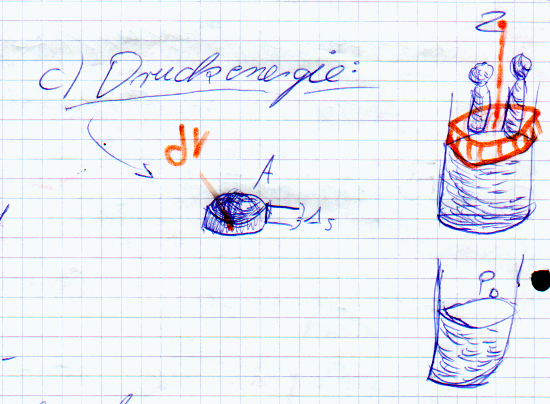 c) Druckenergie:
dV
A
Δs
2
P₀